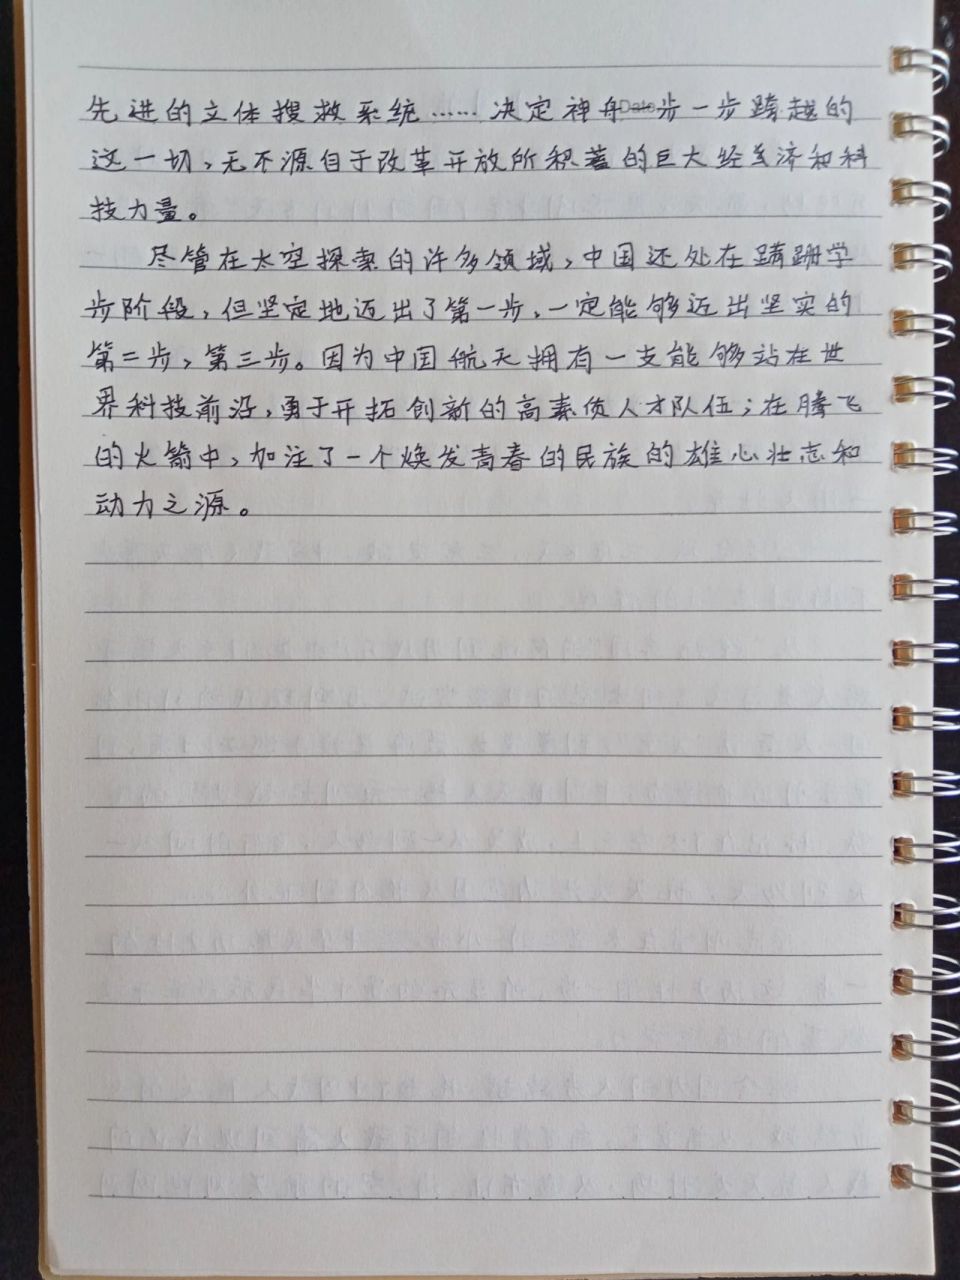 先进的立体搜救系统……决定神舟Date步一步跨越的
这一切，无不源自于改革开放所积蓄的巨大经济和科
技力量。
尽管在太空探索的许多领域，中国还处在蹒跚学
步阶段，但坚定地迈出了第一步，一定能够迈出坚实的
第二步，第三步。因为中国航天拥有一支能够站在世
界科技前沿，勇于开拓创新的高素质人才队伍；在腾飞
的火箭中，加注了一个焕发青春的民族的雄心壮志和
动力之源。